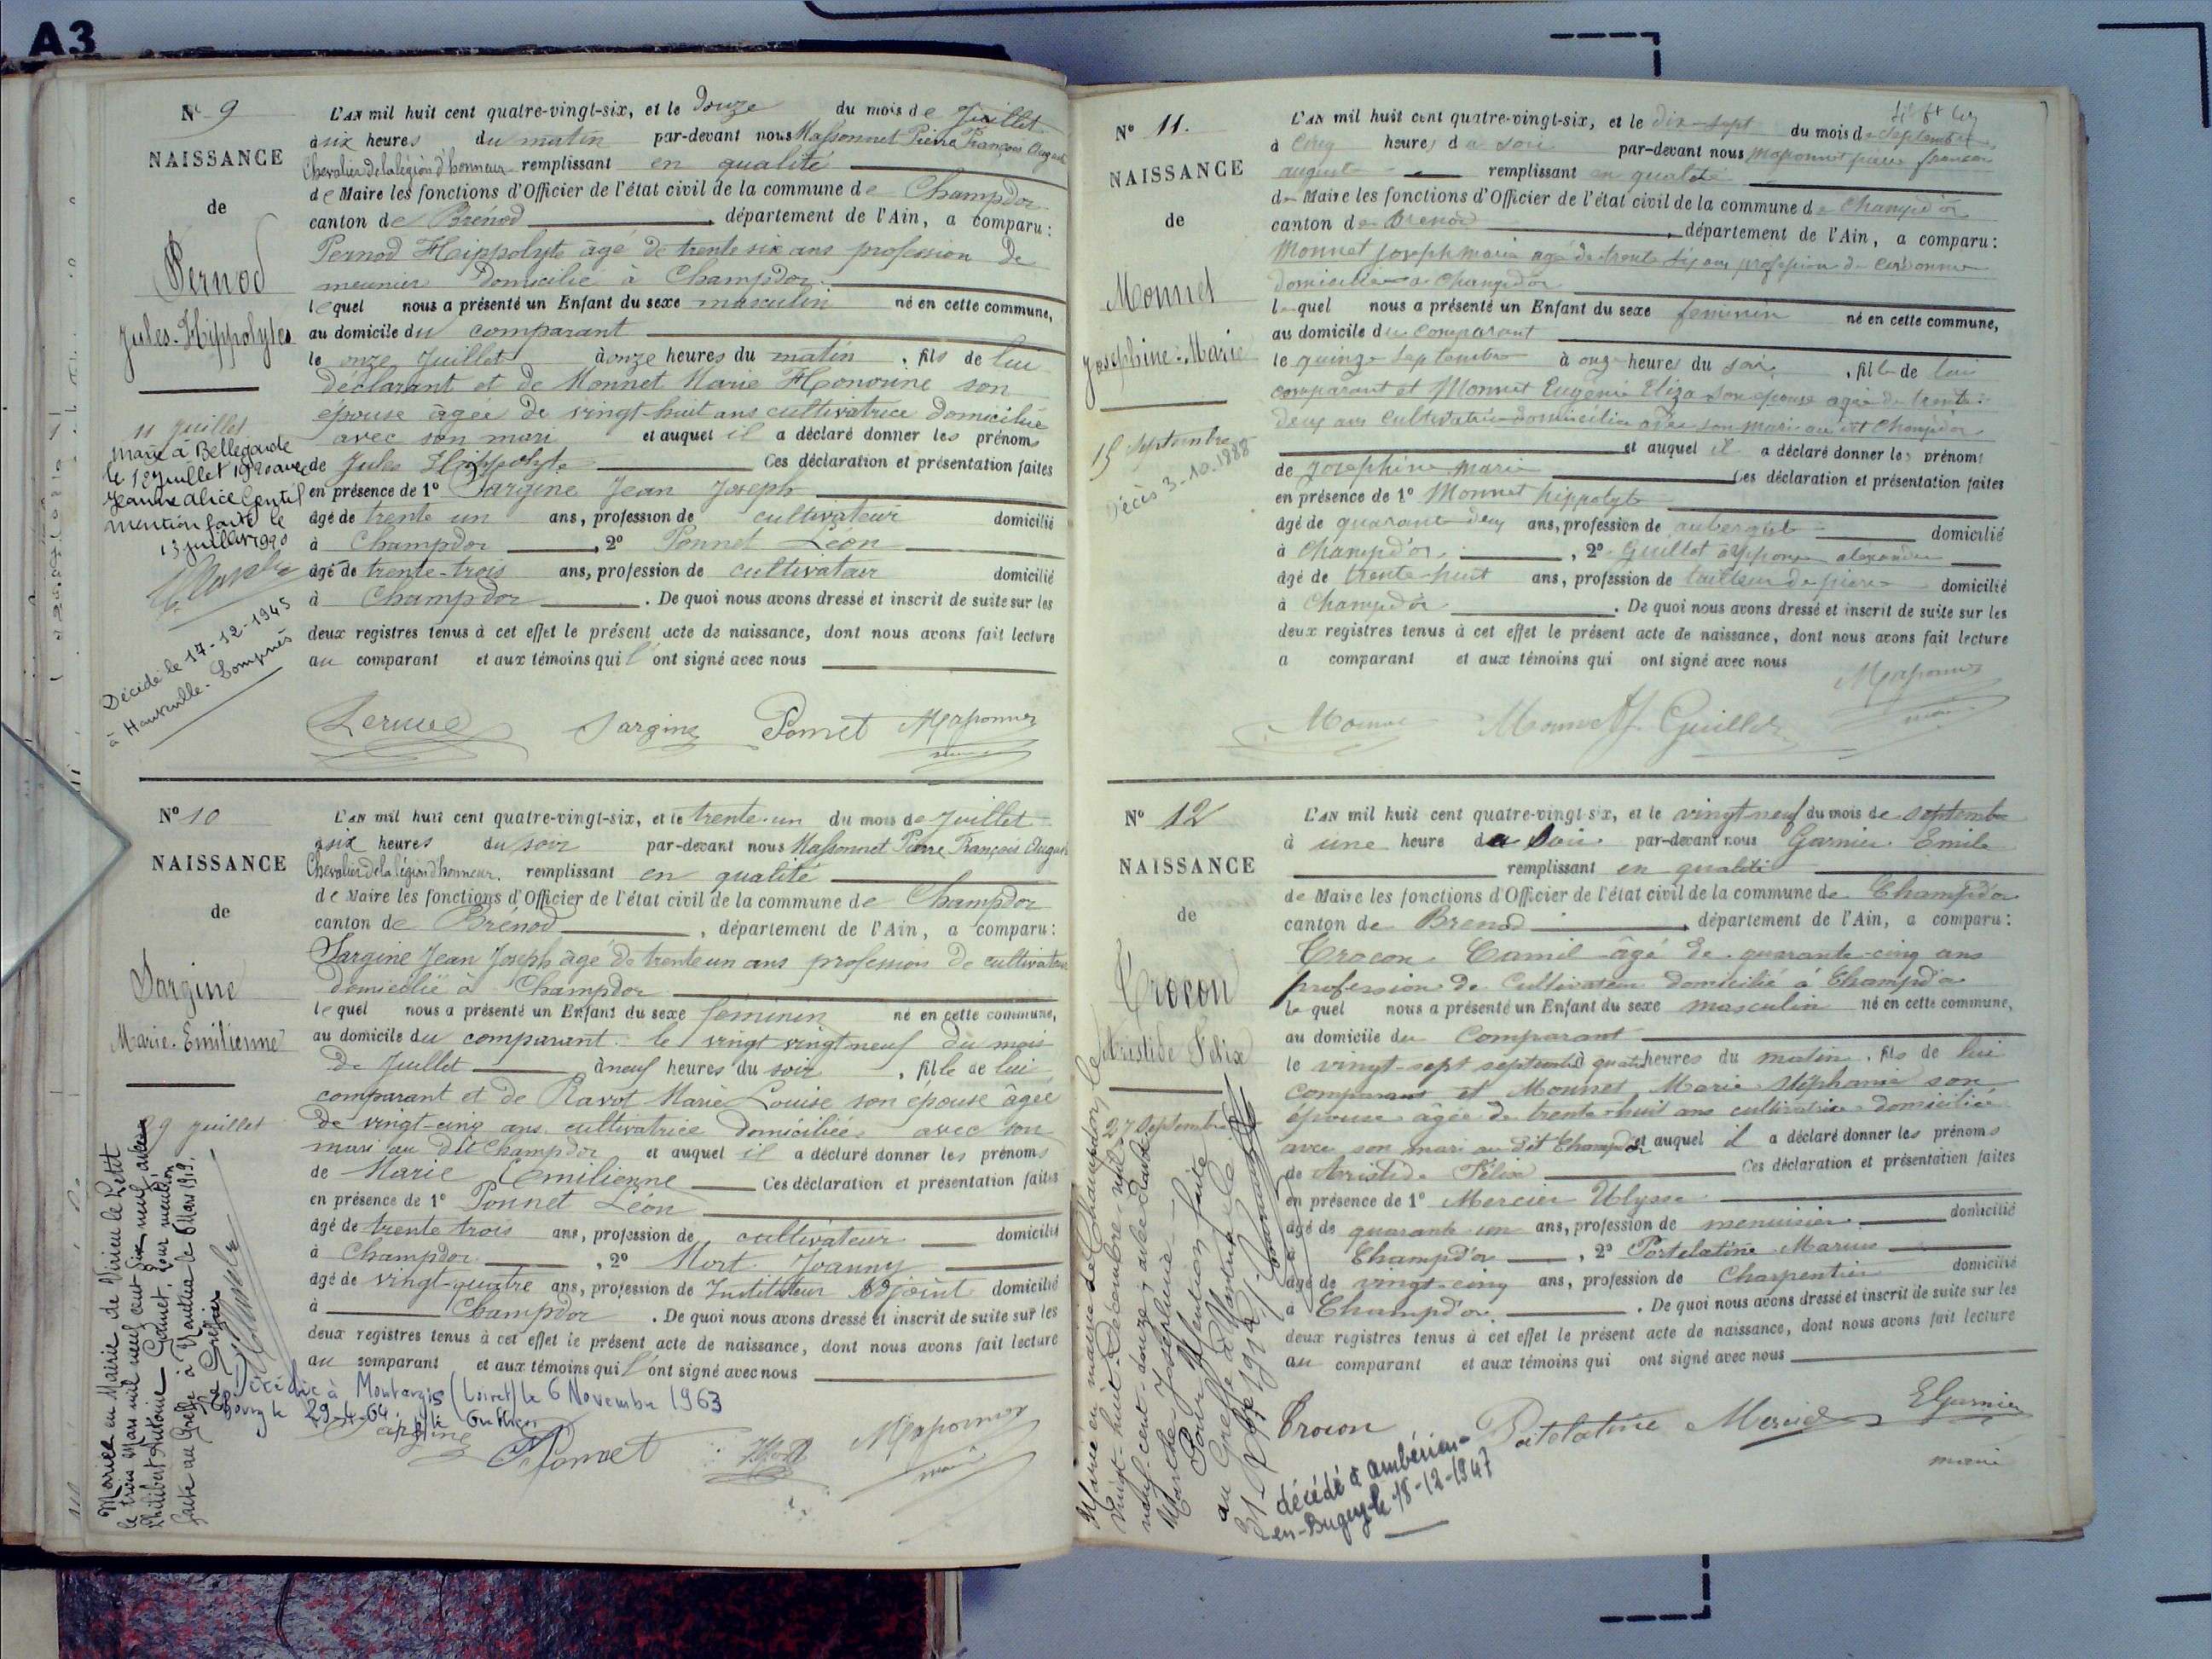 A3
N° 9
NAISSANCE
de
Pernod
Jules-Hippolytes
11 juillet
Marié à Bellegarde
le 10 juillet 1920 avec
Jeanne Alice Gentil
Mention faite le
13 juillet 1920
Décédé le 17-12-1945
à Hauteville-Lompnès
L'AN mil huit cent quatre-vingt-six, et le douze du mois de Juillet
à six heures du matin par-devant nous Massonnet Pierre François August
Chevalier de la légion d'honneur remplissant en qualité
de Maire les fonctions d'Officier de l'état civil de la commune de Champdor
canton de Brénod, département de l'Ain, a comparu:
Pernod Hippolyte âgé de trente six ans profession de
meunier Domicilié à Champdor
lequel nous a présenté un Enfant du sexe masculin né en cette commune,
au domicile du comparant
le onze Juillet à onze heures du matin, fils de lui
déclarant et de Monnet Marie Honorine son
épouse âgée de vingt-huit ans cultivatrice domiciliée
avec son mari et auquel il a déclaré donner les prénoms
de Jules Hippolyte Ces déclaration et présentation faites
en présence de 1° Sargine Jean Joseph
âgé de trente un ans, profession de cultivateur domicilié
à Champdor, 2° Ponnet Léon
âgé de trente-trois ans, profession de cultivateur domicilié
à Champdor. De quoi nous avons dressé et inscrit de suite sur les
deux registres tenus à cet effet le présent acte de naissance, dont nous avons fait lecture
au comparant et aux témoins qui l'ont signé avec nous
Sargine Ponnet Massonnet
N° 10
NAISSANCE
de
Sargine
Marie-Emilienne
29 juillet
Mariée en Mairie de Virieu le Petit
le trois Mars mil neuf cent dix neuf avec
Philibert Antoine. Pour mention
faite au Greffe à Nantua le 6 Mars 1919.
Le Greffier
L'AN mil huit cent quatre-vingt-six, et le trente-un du mois de Juillet
à six heures du soir par-devant nous Massonnet Pierre François August
Chevalier de la légion d'honneur. remplissant en qualité
de Maire les fonctions d'Officier de l'état civil de la commune de Champdor
canton de Brénod, département de l'Ain, a comparu:
Sargine Jean Joseph âgé de trente un ans profession de cultivateur
domicilié à Champdor
lequel nous a présenté un Enfant du sexe féminin né en cette commune,
au domicile du comparant le vingt vingt neuf du mois
de Juillet à neuf heures du soir, fille de lui
comparant et de Ravot Marie Louise son épouse âgée
de vingt-cinq ans cultivatrice domiciliée avec son
mari au dit Champdor et auquel il a déclaré donner les prénoms
de Marie Emilienne Ces déclaration et présentation faites
en présence de 1° Ponnet Léon
âgé de trente trois ans, profession de cultivateur domicilié
à Champdor, 2° Mort Joanny
âgé de vingt-quatre ans, profession de Instituteur Adjoint domicilié
à Champdor. De quoi nous avons dressé et inscrit de suite sur les
deux registres tenus à cet effet le présent acte de naissance, dont nous avons fait lecture
au comparant et aux témoins qui l'ont signé avec nous
Décédée à Montargis (Loiret) le 6 Novembre 1963
Bourg le 29-4-64. Le Greffier
Sargine Ponnet Mort Massonnet
maire
N° 11.
NAISSANCE
de
Monnet
Josephine-Marie
15 Septembre
Décès 3-10-1888
L'AN mil huit cent quatre-vingt-six, et le dix-sept du mois de septembre
à cinq heures du soir par-devant nous Massonnet pierre francois
august remplissant en qualité
de Maire les fonctions d'Officier de l'état civil de la commune de Champd'or
canton de Brenod, département de l'Ain, a comparu:
Monnet joseph marie agé de trente six ans profession de cordonnier
domicilié a Champd'or
lequel nous a présenté un Enfant du sexe feminin né en cette commune,
au domicile du comparant
le quinze septembre à onze heures du soir, fille de lui
comparant et Monnet Eugénie Eliza son epouse agée de trente
deux ans cultivatrice domiciliée avec son mari au dit Champd'or
et auquel il a déclaré donner les prénoms
de Josephine marie Ces déclaration et présentation faites
en présence de 1° Monnet hippolyte
âgé de quarante deux ans, profession de aubergiste domicilié
à Champd'or, 2° Guillot alexandre
âgé de trente-huit ans, profession de tailleur de pierre domicilié
à Champd'or. De quoi nous avons dressé et inscrit de suite sur les
deux registres tenus à cet effet le présent acte de naissance, dont nous avons fait lecture
a comparant et aux témoins qui ont signé avec nous
Monnet Monnet Guillot Massonnet
maire
N° 12
NAISSANCE
de
Crocon
Aristide Félix
27 Septembre
Marié en mairie de Champdor, le
vingt-huit Décembre mil
neuf-cent-douze, avec
Marthe Joséphine
Pour Mention faite
au Greffe à Nantua, le
31 Xbre 1912
L'AN mil huit cent quatre-vingt-six, et le vingt neuf du mois de septembre
à une heure du soir par-devant nous Garnier Emile
remplissant en qualité
de Maire les fonctions d'Officier de l'état civil de la commune de Champd'or
canton de Brenod, département de l'Ain, a comparu:
Crocon Camil âgé de quarante-cinq ans
profession de Cultivateur domicilié à Champd'or
lequel nous a présenté un Enfant du sexe masculin né en cette commune,
au domicile du Comparant
le vingt-sept septembre à quatre heures du matin, fils de lui
comparant et Monnet Marie Stéphanie son
épouse âgée de trente-huit ans cultivatrice domiciliée
avec son mari au dit Champdor et auquel il a déclaré donner les prénoms
de Aristide Félix Ces déclaration et présentation faites
en présence de 1° Mercier Ulysse
âgé de quarante un ans, profession de menuisier domicilié
Champd'or, 2° Portelatine Marius
âgé de vingt-cinq ans, profession de Charpentier domicilié
à Champd'or. De quoi nous avons dressé et inscrit de suite sur les
deux registres tenus à cet effet le présent acte de naissance, dont nous avons fait lecture
au comparant et aux témoins qui ont signé avec nous
Crocon Portelatine Mercier EGarnier
maire
décédé à Ambérieu-
en-Bugey le 18-12-1947